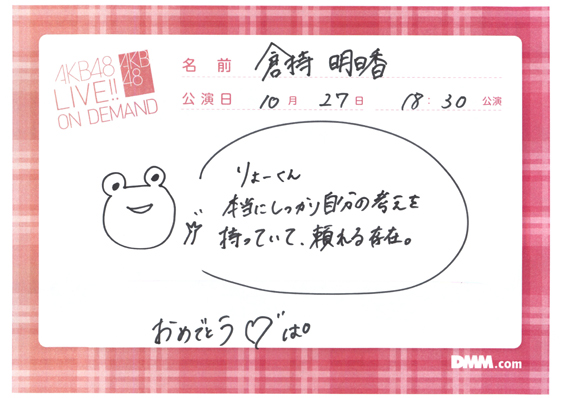 AKB48
LIVE!!
ON DEMAND
AKB
48
名前 倉持明日香
公演日 10月27日 18:30公演
りょーくん
本当にしっかり自分の考えを
持っていて、頼れる存在。
おめでとう♡
DMM.com